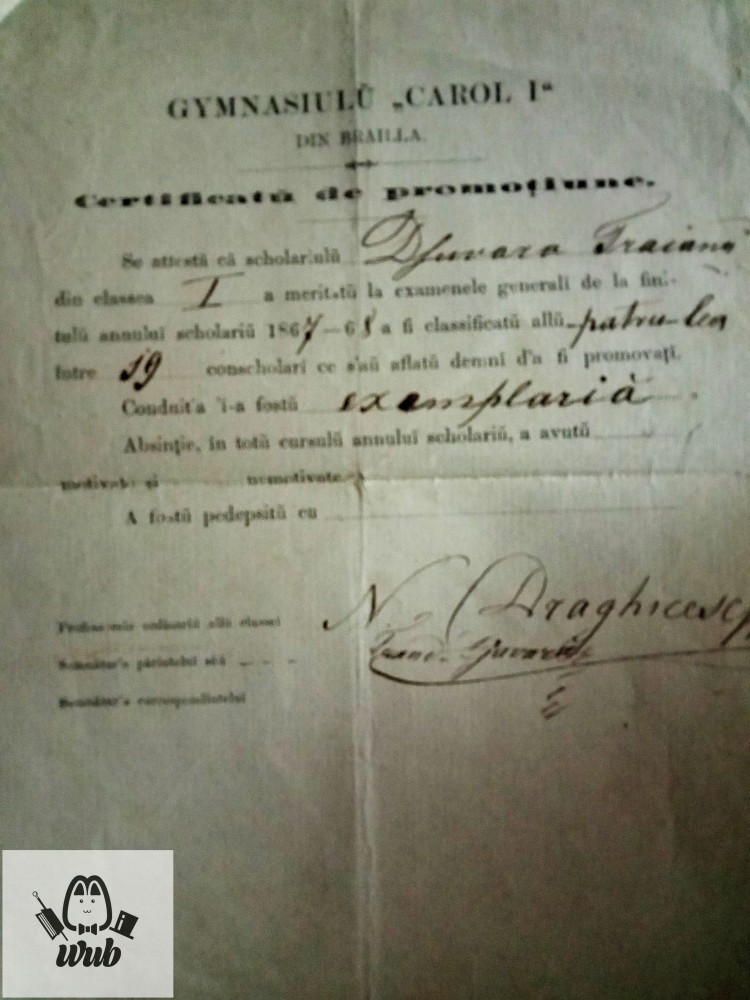 GYMNASIULŬ „CAROL I“
DIN BRAILLA.
Certificatŭ de promoţiune.
Se attestă că scholariulŭ Djuvara Traianŭ
din classea I a meritatŭ la examenele generali de la fini-
tulŭ annuluĭ scholariŭ 1867–68 a fi classificatŭ allŭ patru-lea
între 19 conscholari ce s'aŭ aflatŭ demni d'a fi promovaţi.
Conduit'a ĭ-a fostŭ exemplariă
Absinţie, în totŭ cursulŭ annuluĭ scholariŭ, a avutŭ
motivate şi nemotivate
A fostŭ pedepsitŭ cu
Professorele ordinariŭ allŭ classei N. Draghicesc
Semnătur'a părintelui sĕŭ Djuvara
Semnătur'a correspondintelui
Wub